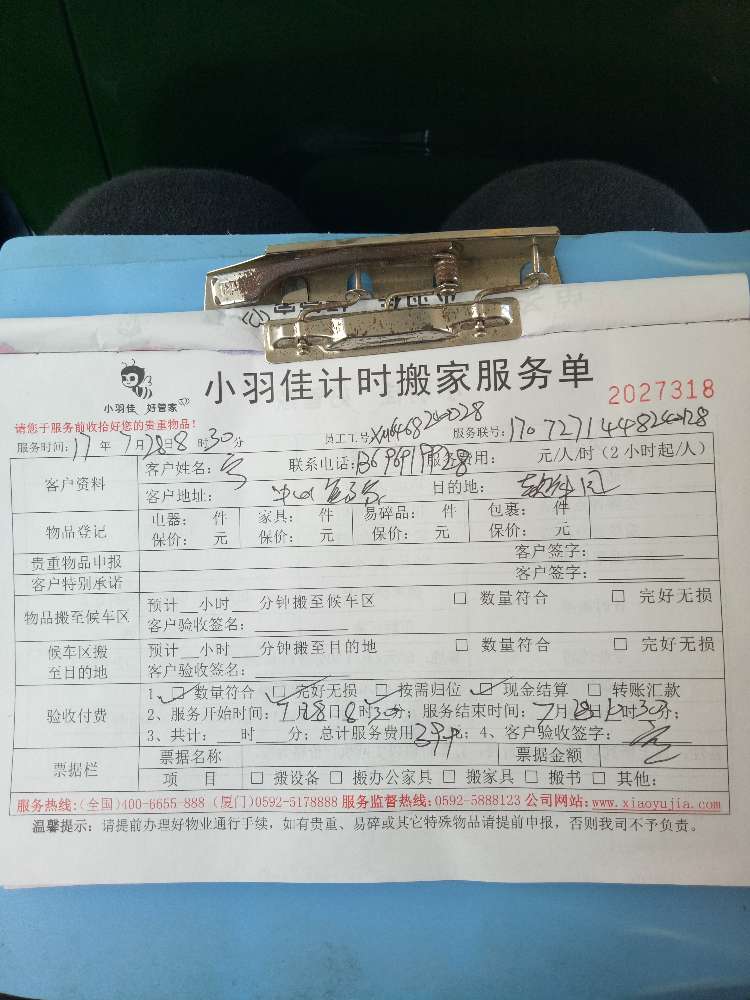 小羽佳 好管家
小羽佳计时搬家服务单
2027318
请您于服务前收拾好您的贵重物品!
服务时间: 17 年 7 月 28 日 8 时 30 分 员工工号: 服务联号:
客户资料
客户姓名: 联系电话: 服务费用: 元/人/时(2小时起/人)
客户地址: 目的地: 软件园
物品登记
电器: 件 家具: 件 易碎品: 件 包裹: 件
保价: 元 保价: 元 保价: 元 保价: 元
贵重物品申报 客户签字:
客户特别承诺 客户签字:
物品搬至候车区
预计__小时___分钟搬至候车区 □ 数量符合 □ 完好无损
客户验收签名:
候车区搬至目的地
预计__小时___分钟搬至目的地 □ 数量符合 □ 完好无损
客户验收签名:
验收付费
1、□ 数量符合 □ 完好无损 □ 按需归位 □ 现金结算 □ 转账汇款
2、服务开始时间: 7月28日8时30分; 服务结束时间: 7月28日 时30分;
3、共计:___时___分; 总计服务费用 ; 4、客户验收签字:
票据栏
票据名称 票据金额
项 目 □ 搬设备 □ 搬办公家具 □ 搬家具 □ 搬书 □ 其他:
服务热线:(全国)400-6655-888 (厦门)0592-5178888 服务监督热线:0592-5888123 公司网站:www.xiaoyujia.com
温馨提示: 请提前办理好物业通行手续, 如有贵重、易碎或其它特殊物品请提前申报, 否则我司不予负责。